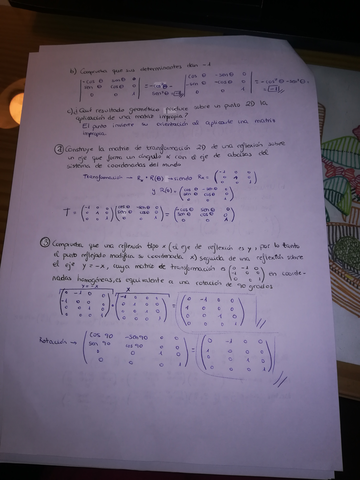 b) Comprueba que sus determinantes dan -1
|-cos θ sen θ 0| |cos θ -sen θ 0|
|sen θ cos θ 0| = -cos²θ - sen²θ = -1 |-sen θ -cos θ 0| = -cos²θ - sen²θ =
|0 0 1| |0 0 1| = -1
c) ¿Qué resultado geométrico produce sobre un punto 2D la
aplicación de una matriz impropia?
El punto invierte su orientación al aplicarle una matriz
impropia.
② Construye la matriz de transformación 2D de una reflexión sobre
un eje que forma un ángulo α con el eje de abcisas del
sistema de coordenadas del mundo
Transformación → Rx · R(θ) → siendo Rx = (-1 0 0
0 1 0
0 0 1)
y R(θ) = (cos θ -sen θ 0
sen θ cos θ 0
0 0 1)
T = (-1 0 0) (cos θ -sen θ 0) = (-cos θ sen θ 0)
(0 1 0) (sen θ cos θ 0) (sen θ cos θ 0)
(0 0 1) (0 0 1) (0 0 1)
③ Comprueba, que una reflexión tipo x (el eje de reflexión es y, por lo tanto
el punto reflejado modifica su coordenada x) seguida de una reflexión sobre
el eje y = -x, cuya matriz de transformación es (0 -1 0
-1 0 0
0 0 1) en coorde-
nadas homogéneas, es equivalente a una rotación de 90 grados.
y = -x x
(0 -1 0 0) (-1 0 0 0) (0 -1 0 0)
(-1 0 0 0) (0 1 0 0) = (1 0 0 0)
(0 0 1 0) (0 0 1 0) (0 0 1 0)
(0 0 0 1) (0 0 0 1) (0 0 0 1)
Rotación → (cos 90 -sen 90 0 0) (0 -1 0 0)
(sen 90 cos 90 0 0) = (1 0 0 0)
(0 0 1 0) (0 0 1 0)
(0 0 0 1) (0 0 0 1)